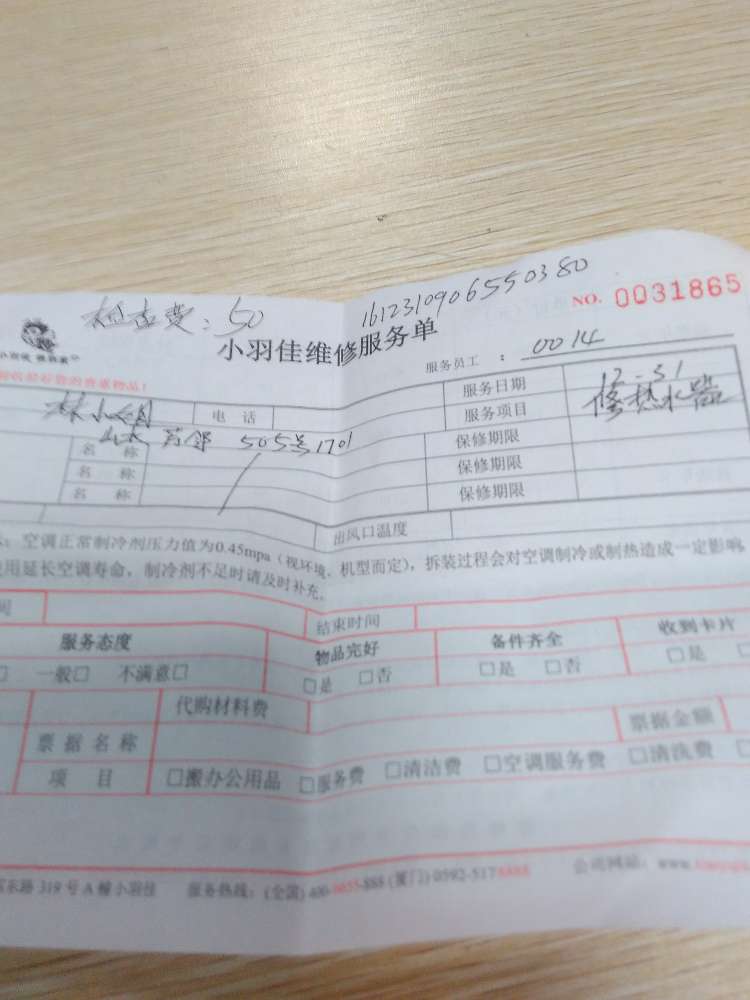 检查费：50
1612310906550380
NO. 0031865
小羽佳维修服务单
服务员工 ： 0014
服务日期 12-31
林小姐 电 话 服务项目 修热水器
505号1701
名 称 保修期限
名 称 保修期限
名 称 保修期限
出风口温度
空调正常制冷剂压力值为0.45mpa（视环境、机型而定），拆装过程会对空调制冷或制热造成一定影响
用延长空调寿命，制冷剂不足时请及时补充。
间 结束时间
服务态度 物品完好 备件齐全 收到卡片
□ 一般□ 不满意□ □是 □否 □是 □否 □是
代购材料费 票据金额
票据名称
项 目 □搬办公用品 □服务费 □清洁费 □空调服务费 □清洗费
东路319号A幢小羽佳 服务热线：(全国)400-6655-888 (厦门)0592-5178888 公司网站：www.